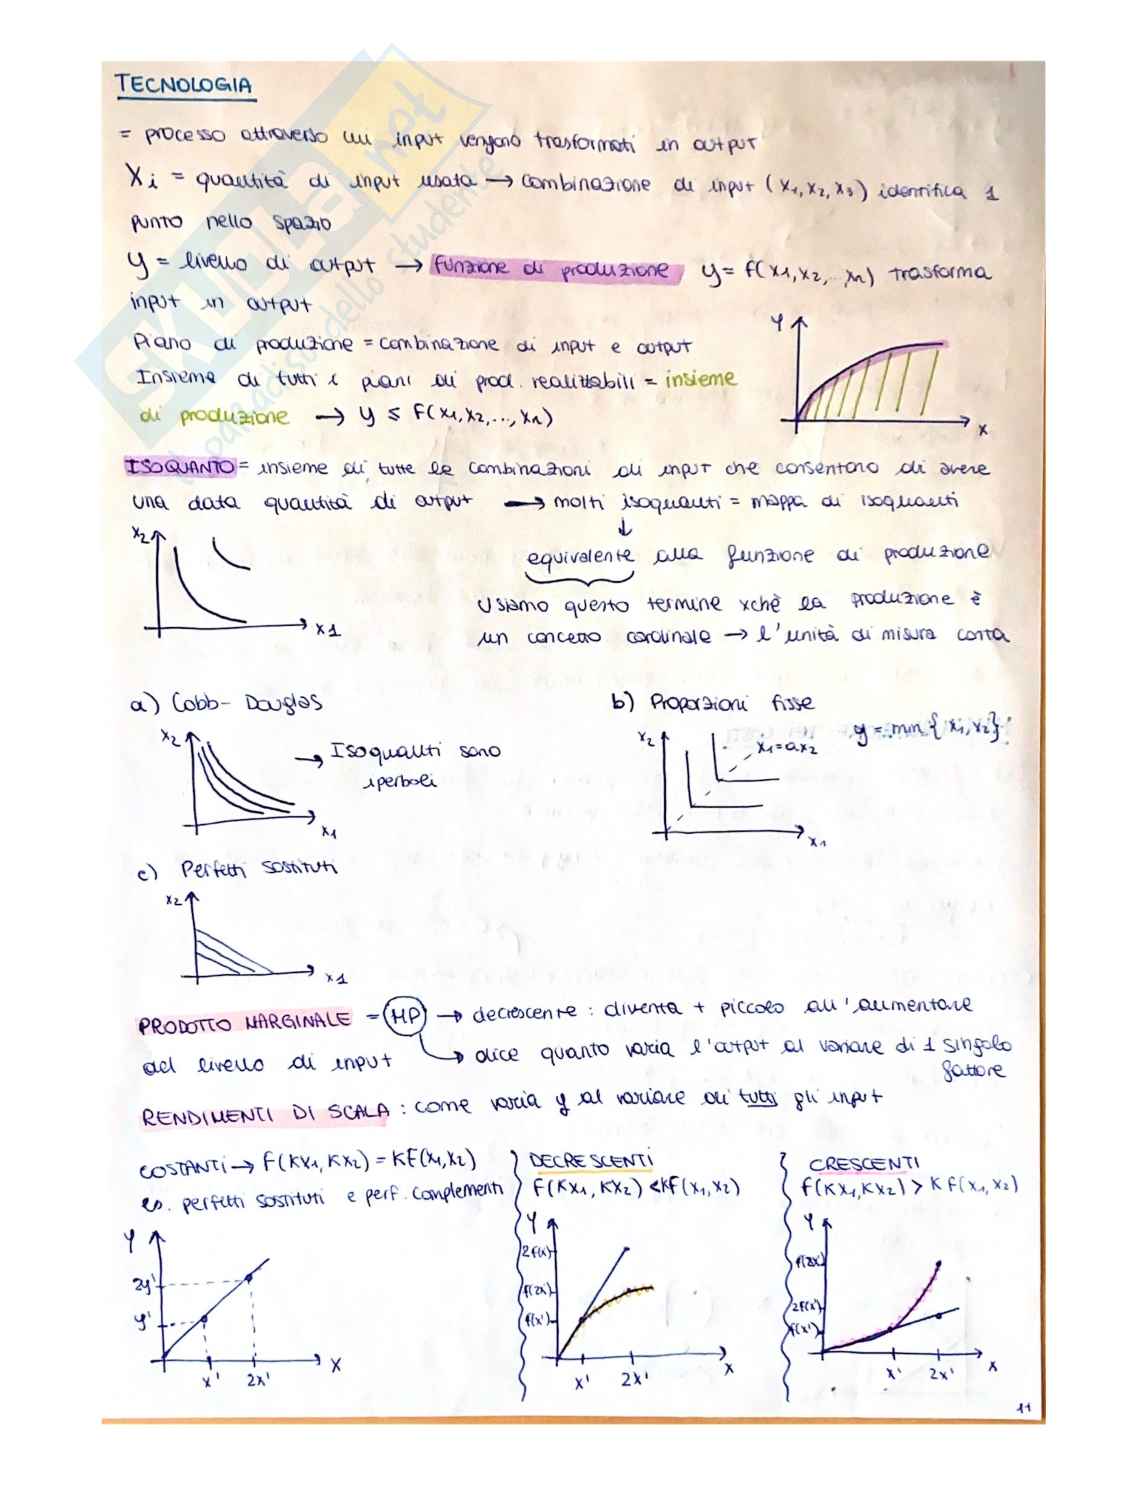 TECNOLOGIA
= processo attraverso cui input vengono trasformati in output
Xi = quantità di input usata → combinazione di input (x1, x2, x3) identifica 1
punto nello spazio
y = livello di output → funzione di produzione y = f(x1, x2, .. xn) trasforma
input in output
Piano di produzione = combinazione di input e output
Insieme di tutti i piani di prod. realizzabili = insieme
di produzione → y ≤ f(x1, x2, ..., xn)
Y
x
ISOQUANTO = insieme di tutte le combinazioni di input che consentono di avere
una data quantità di output → molti isoquanti = mappa di isoquanti
↓
equivalente alla funzione di produzione
Usiamo questo termine xchè la produzione è
un concetto cardinale → l'unità di misura conta
x2
x1
a) Cobb-Douglas
x2
→ Isoquanti sono
iperboli
x1
b) Proporzioni fisse
y = min {x1, x2}
x2
x1=ax2
x1
c) Perfetti sostituti
x2
x1
PRODOTTO MARGINALE = MP → decrescente: diventa + piccolo all'aumentare
del livello di input → dice quanto varia l'output al variare di 1 singolo
fattore
RENDIMENTI DI SCALA: come varia y al variare di tutti gli input
COSTANTI → f(Kx1, Kx2) = Kf(x1, x2)
es. perfetti sostituti e perf. complementi
Y
2y'
y'
x'
2x'
X
DECRESCENTI
f(Kx1, Kx2) < Kf(x1, x2)
Y
2f(x')
f(2x')
f(x')
x'
2x'
x
CRESCENTI
f(Kx1, Kx2) > K f(x1, x2)
Y
f(2x')
2f(x')
f(x')
x'
2x'
x
11
skuola.net
il paradiso dello studente